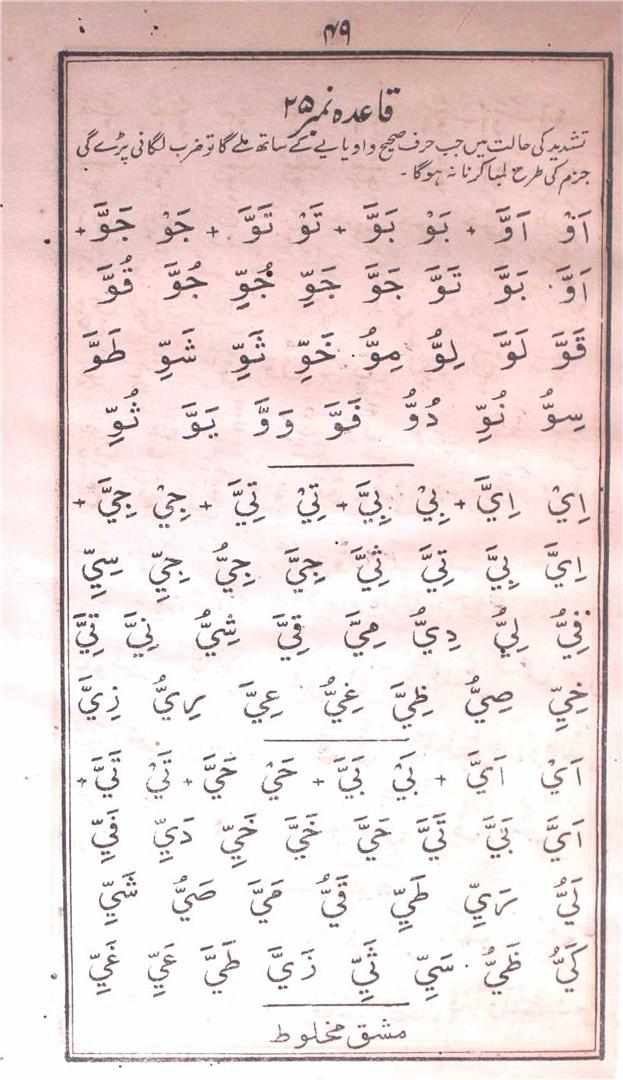 ۴۹
قاعدہ نمبر ۲۵
تشدید کی حالت میں جب حرف صحیح واو یا یے کے ساتھ ملے گا تو ضرب لگانی پڑے گی
جزم کی طرح لمبا کرنا نہ ہوگا۔
اَوْ اَوَّ + بَوْ بَوَّ + تَوْ تَوَّ + جَوْ جَوَّ +
اَوَّ بَوَّ تَوَّ جَوَّ جَوِّ جُوِّ جُوَّ قُوَّ
قَوَّ لَوَّ لِوُّ مِوُّ خَوِّ ثَوِّ شَوِّ طَوَّ
سِوُّ نُوِّ دُوُّ فَوَّ وَوَّ يَوَّ ثُوِّ
اِيْ اِيَّ + بِيْ بِيَّ + تِيْ تِيَّ + جِيْ جِيَّ +
اِيَّ بِيَّ تِيَّ ثِيَّ جِيَّ جِيُّ جِيِّ سِيِّ
فِيُّ لِيُّ دِيُّ مِيَّ قِيَّ شِيُّ نِيَّ تِيَّ
خِيِّ صِيُّ ظِيَّ غِيُّ عِيَّ رِيُّ زِيَّ
اَيْ اَيَّ + بَيْ بَيَّ + حَيْ حَيَّ + تَيْ تَيَّ +
اَيَّ بَيَّ تَيَّ حَيَّ خَيَّ خَيِّ دَيِّ فَيِّ
لَيُّ رَيِّ طَيِّ قَيُّ مَيَّ صَيُّ شَيِّ
كَيُّ ظَيُّ سَيِّ ثَيِّ زَيَّ طَيَّ عَيِّ غَيِّ
مشق مخلوط